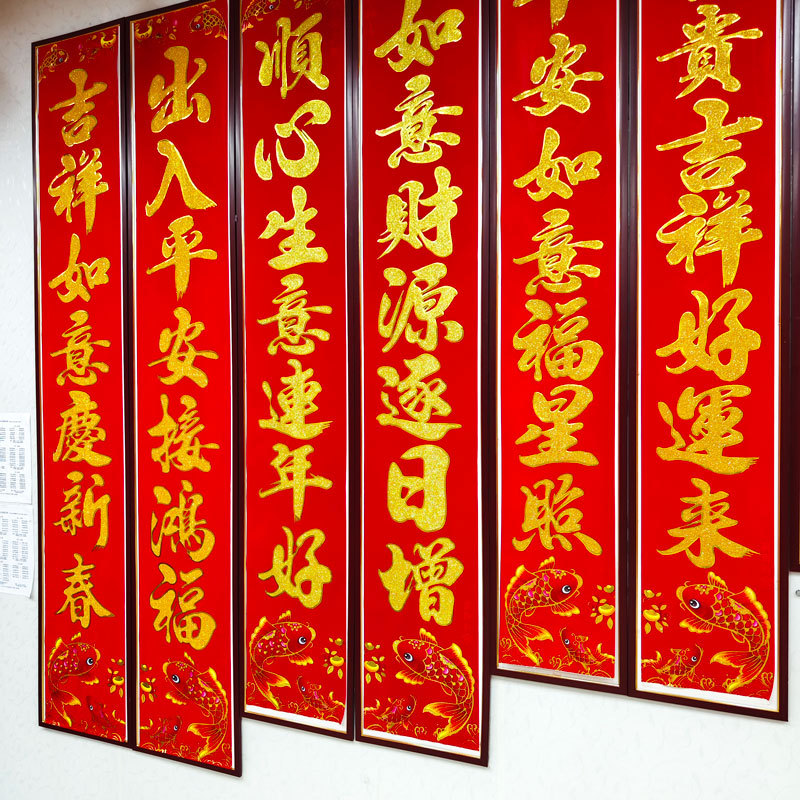 貴吉祥好運来
平安如意福星照
如意財源逐日增
順心生意連年好
出入平安接鴻福
吉祥如意慶新春